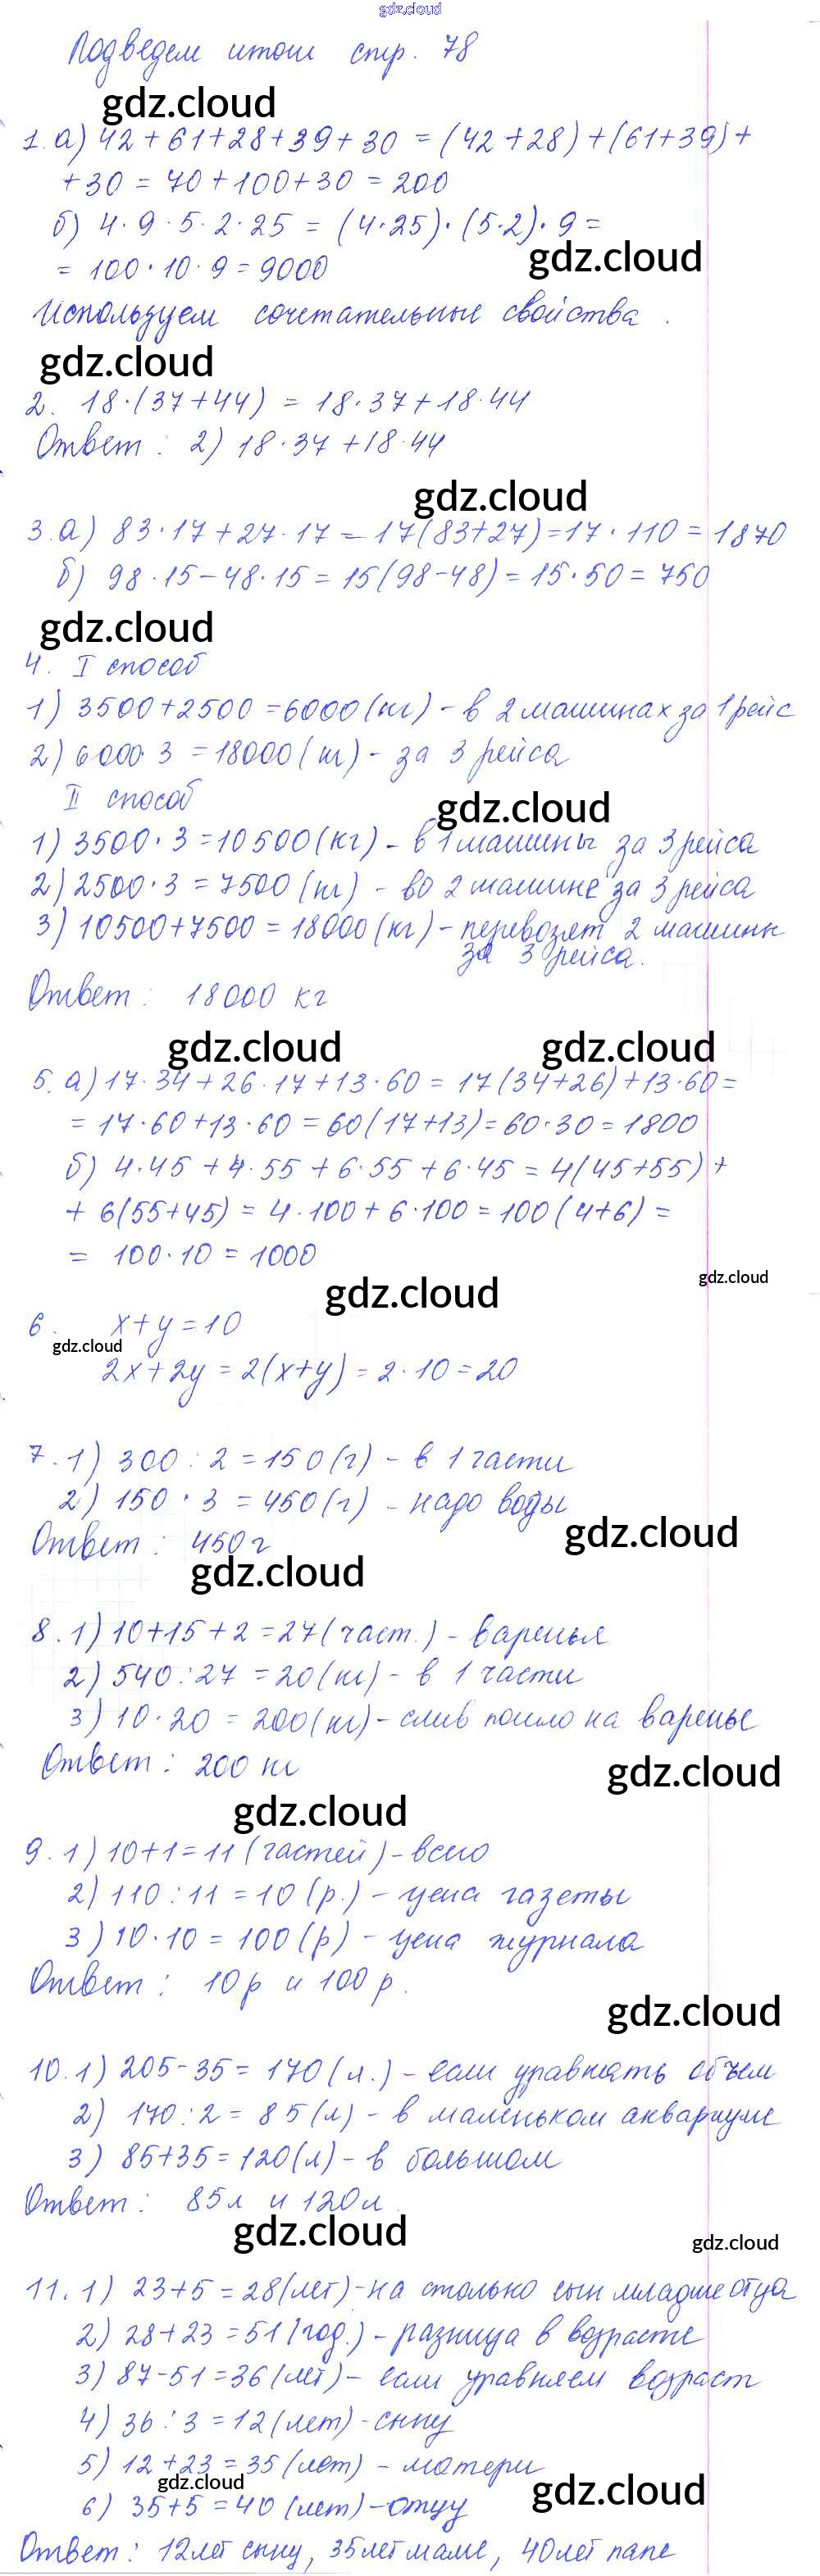 gdz.cloud
Подведем итоги стр. 78
gdz.cloud
1. а) 42 + 61 + 28 + 39 + 30 = (42 + 28) + (61 + 39) +
+ 30 = 70 + 100 + 30 = 200
б) 4 · 9 · 5 · 2 · 25 = (4 · 25) · (5 · 2) · 9 =
gdz.cloud
= 100 · 10 · 9 = 9000
Используем сочетательные свойства.
gdz.cloud
2. 18 · (37 + 44) = 18 · 37 + 18 · 44
Ответ: 2) 18 · 37 + 18 · 44
gdz.cloud
3. а) 83 · 17 + 27 · 17 = 17(83 + 27) = 17 · 110 = 1870
б) 98 · 15 - 48 · 15 = 15(98 - 48) = 15 · 50 = 750
gdz.cloud
4. I способ
1) 3500 + 2500 = 6000 (кг) - в 2 машинах за 1 рейс
2) 6000 · 3 = 18000 (кг) - за 3 рейса
II способ
gdz.cloud
1) 3500 · 3 = 10500 (кг) - в 1 машины за 3 рейса
2) 2500 · 3 = 7500 (кг) - во 2 машине за 3 рейса
3) 10500 + 7500 = 18000 (кг) - перевозят 2 машины
за 3 рейса.
Ответ: 18000 кг
gdz.cloud gdz.cloud
5. а) 17 · 34 + 26 · 17 + 13 · 60 = 17(34 + 26) + 13 · 60 =
= 17 · 60 + 13 · 60 = 60(17 + 13) = 60 · 30 = 1800
б) 4 · 45 + 4 · 55 + 6 · 55 + 6 · 45 = 4(45 + 55) +
+ 6(55 + 45) = 4 · 100 + 6 · 100 = 100(4 + 6) =
= 100 · 10 = 1000
gdz.cloud
gdz.cloud
6. x + y = 10
gdz.cloud
2x + 2y = 2(x + y) = 2 · 10 = 20
7. 1) 300 : 2 = 150 (г) - в 1 части
2) 150 · 3 = 450 (г) - надо воды
gdz.cloud
Ответ: 450 г
gdz.cloud
8. 1) 10 + 15 + 2 = 27 (част.) - варенья
2) 540 : 27 = 20 (кг) - в 1 части
3) 10 · 20 = 200 (кг) - слив пошло на варенье
Ответ: 200 кг
gdz.cloud
gdz.cloud
9. 1) 10 + 1 = 11 (частей) - всего
2) 110 : 11 = 10 (р.) - цена газеты
3) 10 · 10 = 100 (р) - цена журнала
Ответ: 10 р и 100 р.
gdz.cloud
10. 1) 205 - 35 = 170 (л.) - если уравнять объем
2) 170 : 2 = 85 (л) - в маленьком аквариуме
3) 85 + 35 = 120 (л) - в большом
Ответ: 85 л и 120 л.
gdz.cloud
gdz.cloud
11. 1) 23 + 5 = 28 (лет) - на столько сын младше отца
2) 28 + 23 = 51 (год.) - разница в возрасте
3) 87 - 51 = 36 (лет) - если уравняем возраст
4) 36 : 3 = 12 (лет) - сыну
5) 12 + 23 = 35 (лет) - матери
gdz.cloud gdz.cloud
6) 35 + 5 = 40 (лет) - отцу
Ответ: 12 лет сыну, 35 лет маме, 40 лет папе